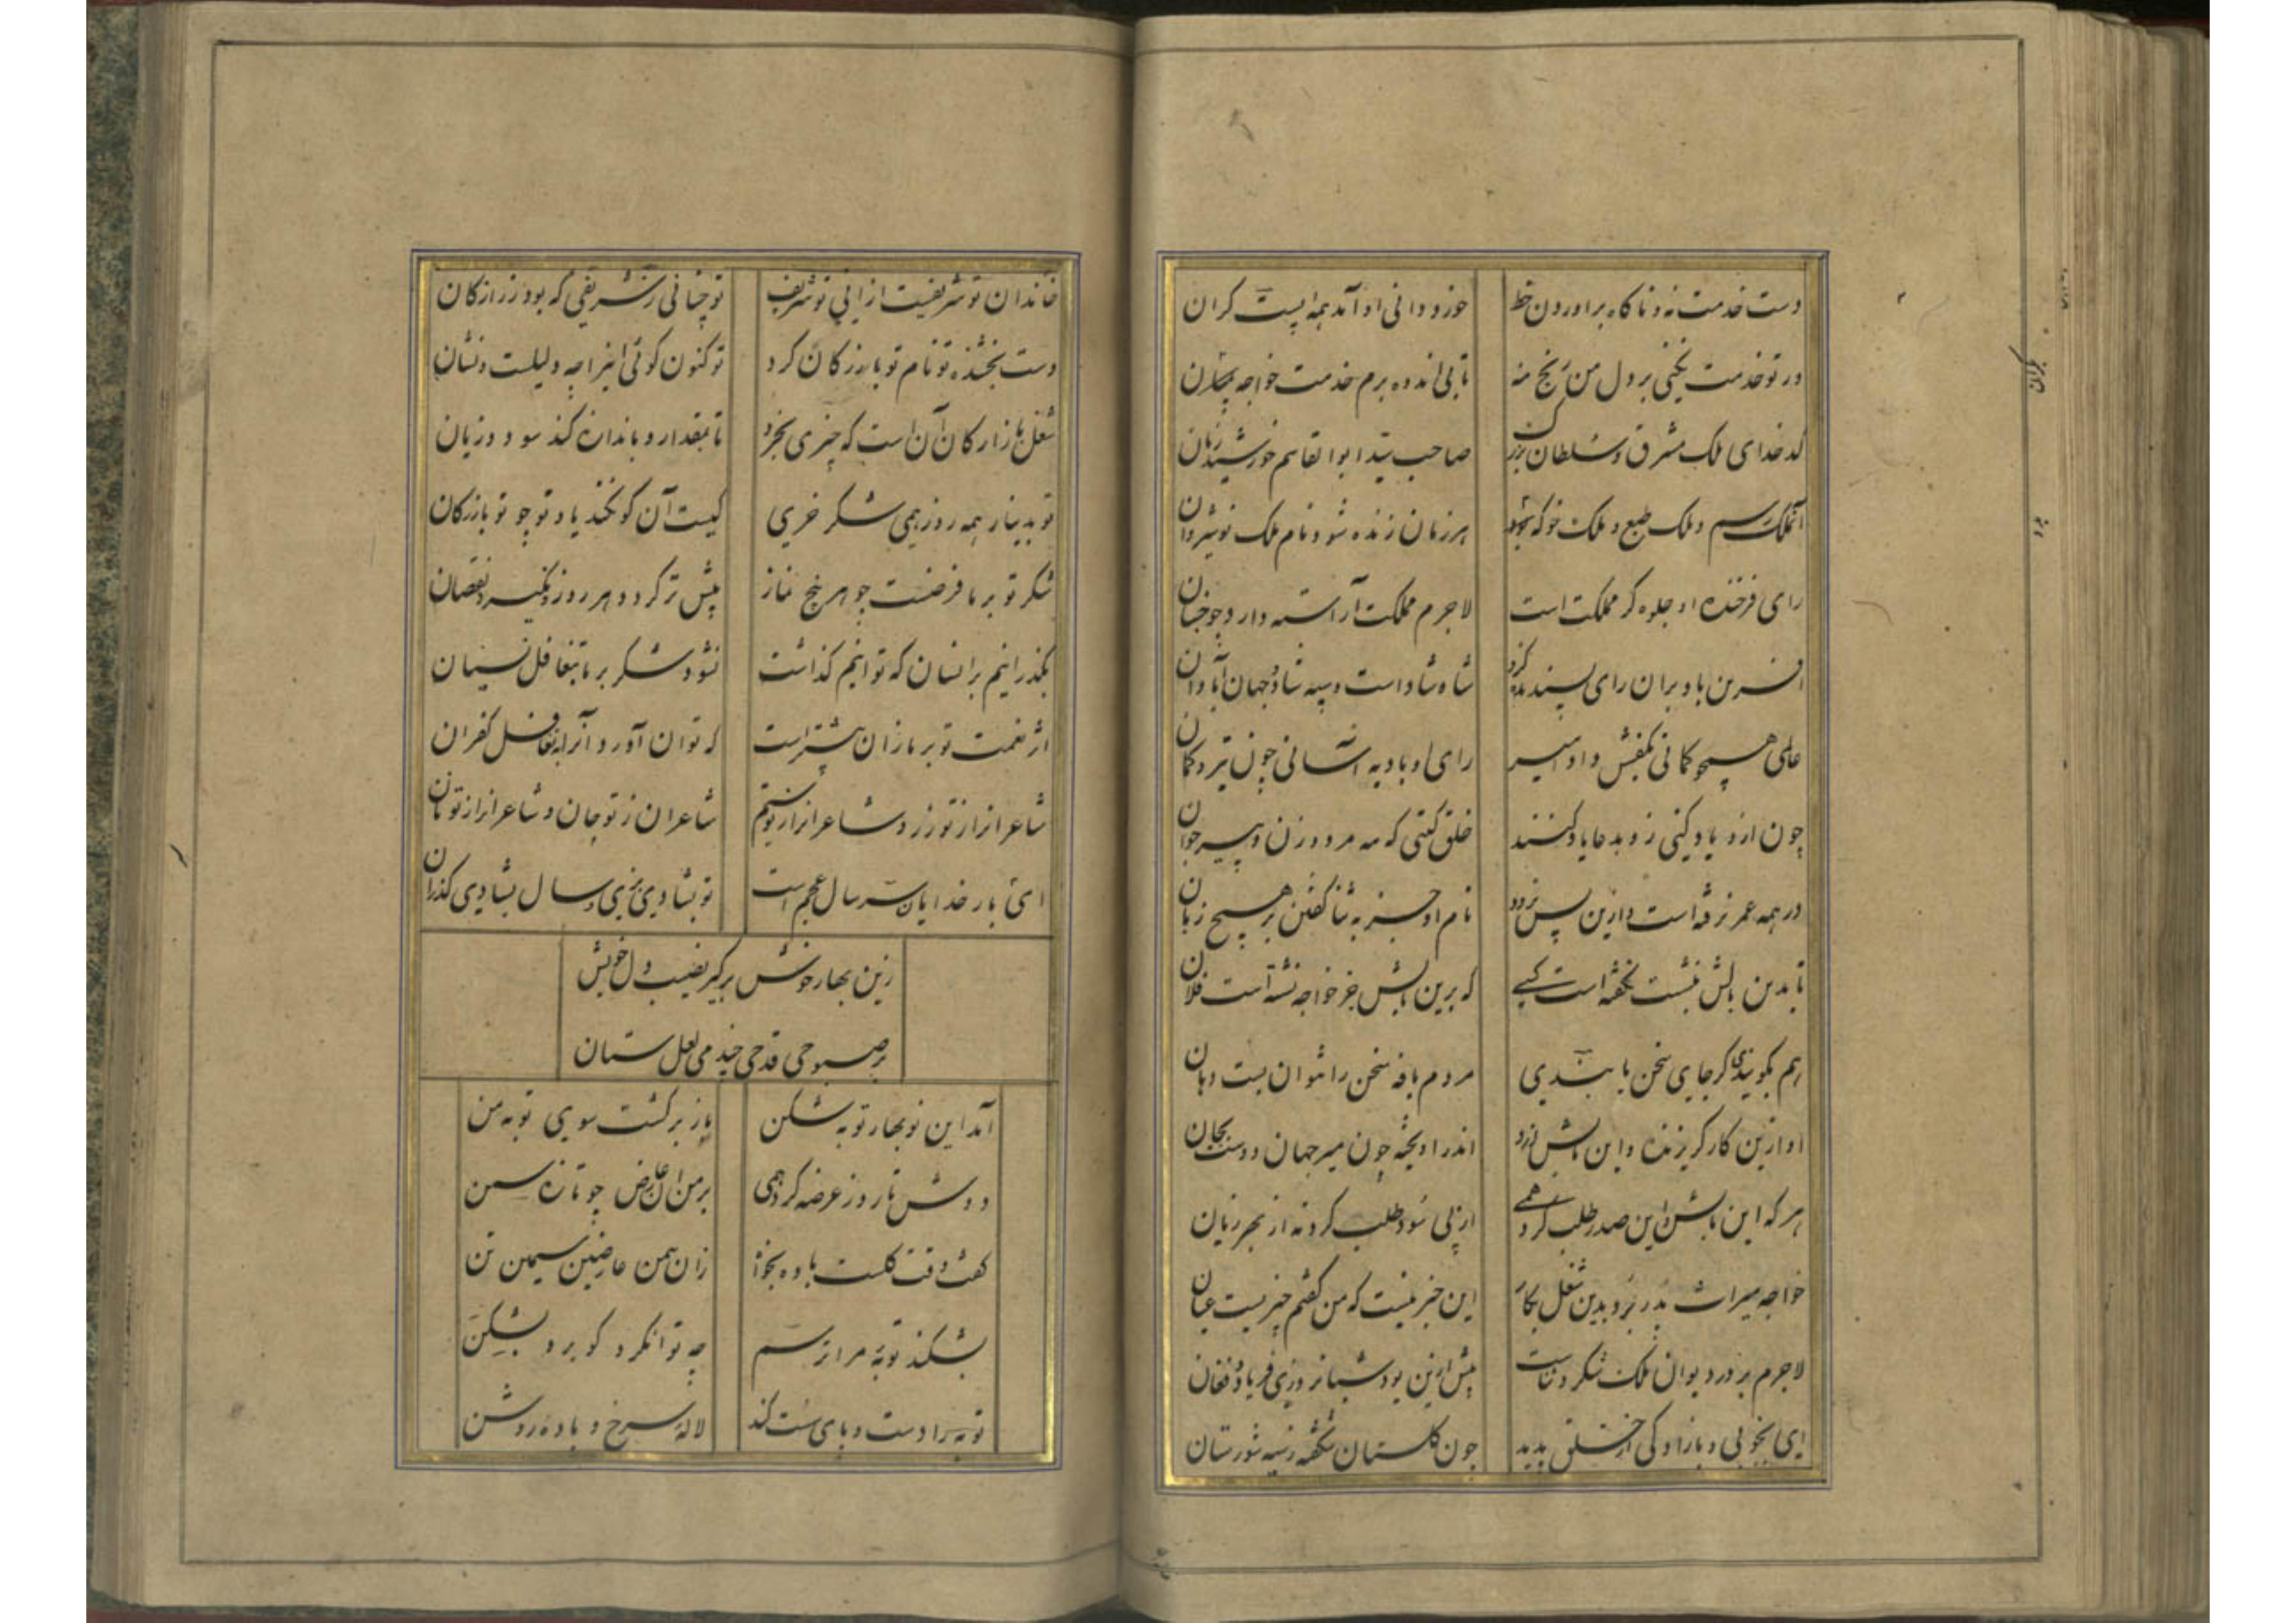 دست خدمت نه و ناکاه براوردن خط خوز و دانی او آمد همه اپست کران
ور تو خدمت نکنی بر دل من رنج منه تا بی اندوه برم خدمت خواجه بپکران
کدخدای ملک مشرق و سلطان بزرک صاحب سید ابوالقاسم خورشید زمان
آنملک رسم و ملک طبع و ملک خو که بجود هر زمان زنده شود نام ملک نوشیروان
رای فرخنده او جلوه کر مملکت است لاجرم مملکت آراسته دارد چو جنان
افرین باد بران رای پسندیده کزو شاه شاد است و سپه شاد و جهان آبادان
عالمی همچو کمانی بکفش داد امیر رای او باد به آسانی چون تیر و کمان
چون ازو یاد کنی زو بدعا یاد کنند خلق کیتی که مه مرد و زن و پیر و جوان
در همه عمر نرفته است و ازین پس نرود نام او جز به ثنا کفتن بر هیچ زبان
تا بدین بالش بنشست نکفته است کسی که برین بالش جز خواجه نشسته است فلان
هم بکویندی کر جای سخن یابندی مردم یافه سخن را نتوان بست دهان
او ازین کار کریزنده و این بالش ازو اندر اویخته چون میر جهان دوست بجان
هر که این بالش و این صدر طلب کرد همی از پی سود طلب کرد نه از بهر زیان
خواجه میراث پدر برد بدین شغل بکار این خبر نیست که من کفتم خبریست عیان
لاجرم بر در دیوان ملک شکر و ثناست پیش ازین بود شبانروزی فریاد و فغان
ای بخوبی و بازادکی از خلق پدید چون کلستان شکفته ز سیه شورستان
خاندان تو شریفست ازانی تو شریف تو چنانی ز شریفی که بود زر از کان
دست بخشنده تو نام تو بازرکان کرد تو کنون کوئی اینرا چه دلیلست و نشان
شغل بازارکان آن است که چیزی بخرد تا بمقدار و باندازه کند سود و زیان
تو بدینار همه روز همی شکر خری کیست آن کو نکند یاد تو چو تو بازرکان
شکر تو بر ما فرضست چو هر پنج نماز پیش تر کردد و هر روز نکیرد نقصان
بکذرانیم بر انسان که توانیم کذاشت نشود شکر بر ما بتغافل نسیان
اثر نعمت تو بر ما زان بیشتر است که توان آورد آنرا بتغافل کفران
شاعران را ز تو زر و شاعران را ز تو سیم شاعران ز تو جان و شاعران را ز تو نان
ای بار خدایان سر سال عجم است تو بشادی بزی و سال بشادی کذران
زین بهار خوش برکیر نصیب دل خویش
بر صبوحی قدحی چند می لعل ستان
آمد این نوبهار توبه شکن باز برکشت سوی توبه من
دوش تا روز عرضه کرد همی بر من ان عارض چو تازه سمن
کفت وقت کلست باده بخواه زان سمن عارضین سیمین تن
بشکند توبه مرا ترسم چه توانکرد کو برو بشکن
توبه را دست و پای سست کند لاله سرخ و باده روشن